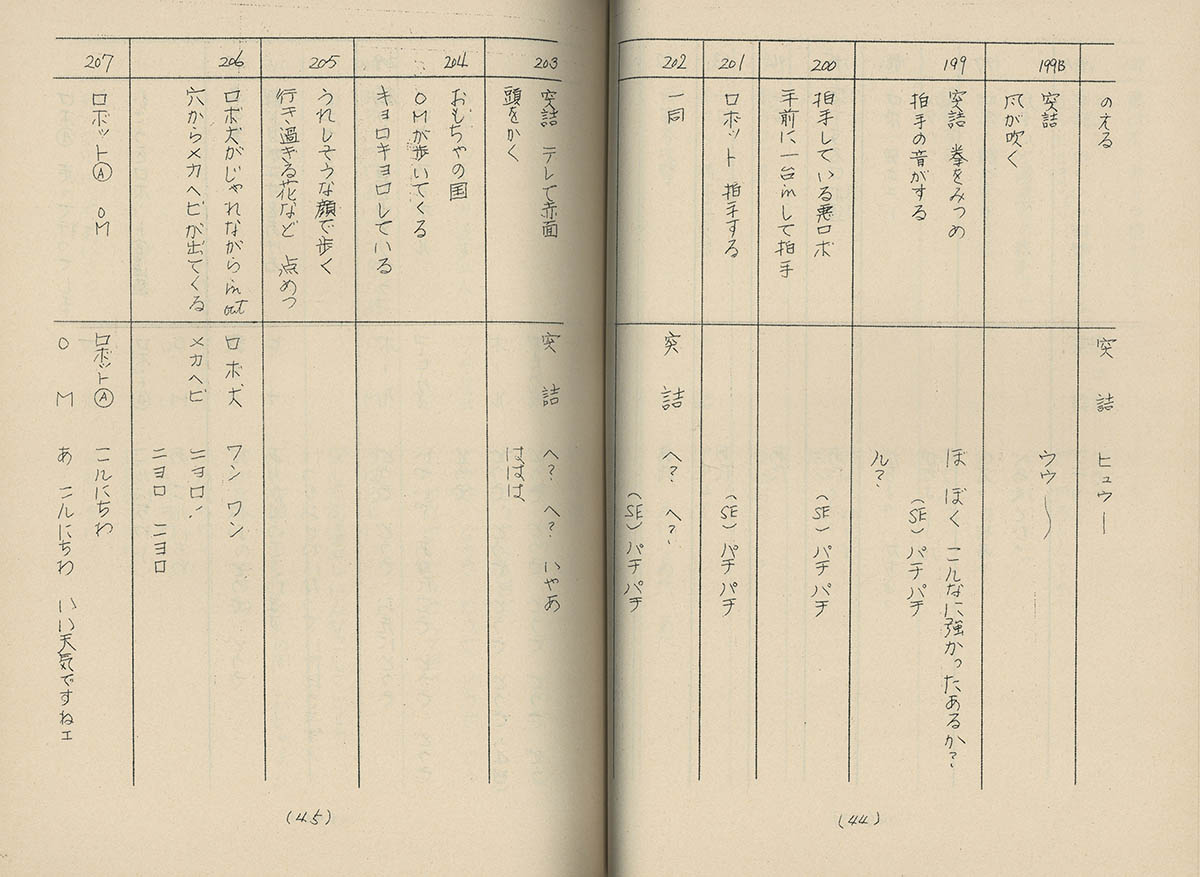 のえる
突詰 ヒュウー
199B
突詰
風が吹く
ウウ〜
199
突詰 拳をみつめ
拍手の音がする
ぼ ぼく こんなに強かったあるか?
(SE) パチパチ
ん?
200
拍手している悪ロボ
手前に一台inして拍手
(SE) パチパチ
201
ロボット 拍手する
(SE) パチパチ
202
一同
突詰 へ? へ?
(SE) パチパチ
(44)
203
突詰 テレて赤面
頭をかく
突詰 へ? へ? いやあ
ははは
204
おもちゃの国
OMが歩いてくる
キョロキョロしている
205
うれしそうな顔で歩く
行き過ぎる花など 点めつ
206
ロボ犬がじゃれながらin out
穴からメカヘビが出てくる
ロボ犬 ワン ワン
メカヘビ ニョロ!
ニョロ ニョロ
207
ロボットⒶ OM
ロボットⒶ こんにちわ
OM あ こんにちわ いい天気ですねェ
(45)